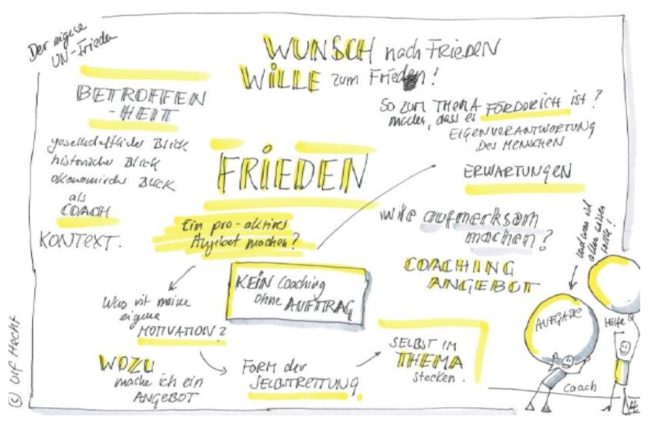 Der eigene
UN-Frieden
WUNSCH nach FRIEDEN
WILLE zum Frieden!
BETROFFEN
-HEIT
gesellschaftlicher Blick
historischer Blick
ökonomischer Blick
als
COACH
KONTEXT.
FRIEDEN
So zum THEMA
machen, dass es FÖRDERLICH ist?
EIGENVERANTWORTUNG
DES MENSCHEN
ERWARTUNGEN
Ein pro-aktives
Angebot machen?
Wie aufmerksam
machen?
COACHING
ANGEBOT
KEIN Coaching
ohne AUFTRAG
Was ist meine
eigene
MOTIVATION?
WOZU
mache ich ein
ANGEBOT
FORM der
SELBSTRETTUNG
SELBST IM
THEMA
stecken.
AUFGABE
Hilfe
Coach
© Ulf Macht